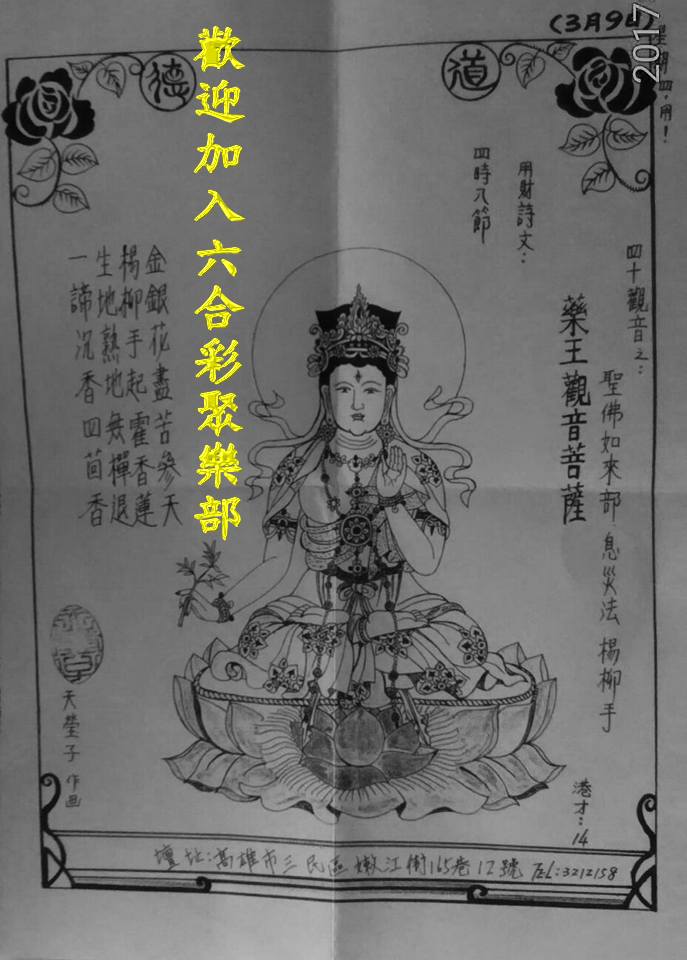 (3月9日)
2017
道
德
歡迎加入六合彩聚樂部
四十觀音之:
聖佛如來部 息災法 楊柳手
藥王觀音菩薩
用財詩文:
四時八節
金銀花盡苦參天
楊柳手起霍香蓮
生地熟地無樿退
一諦沉香四茴香
天瑩子 作画
港才:14
壇址:高雄市三民區嫩江街165巷12號 TEL:3212158